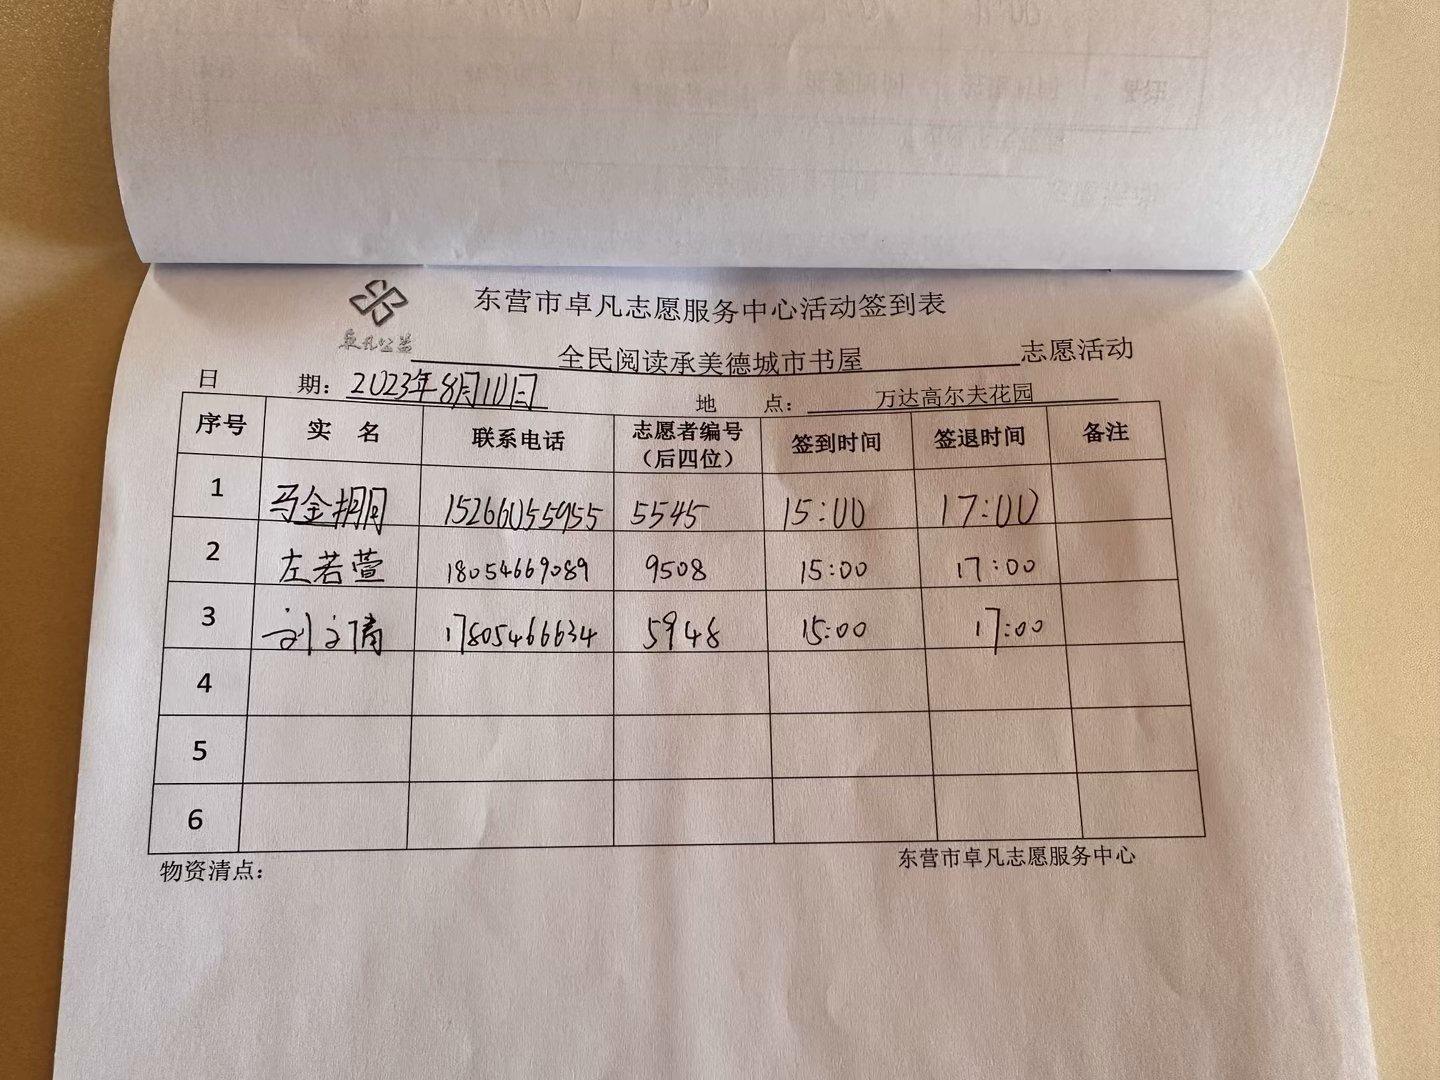 东营市卓凡志愿服务中心活动签到表
卓凡公益
全民阅读承美德城市书屋 志愿活动
日 期：2023年8月10日 地 点：万达高尔夫花园
序号 实 名 联系电话 志愿者编号（后四位） 签到时间 签退时间 备注
1 马金 15266055955 5545 15:00 17:00
2 左若萱 18054669089 9508 15:00 17:00
3 刘文倩 17805466634 5948 15:00 17:00
4
5
6
物资清点： 东营市卓凡志愿服务中心